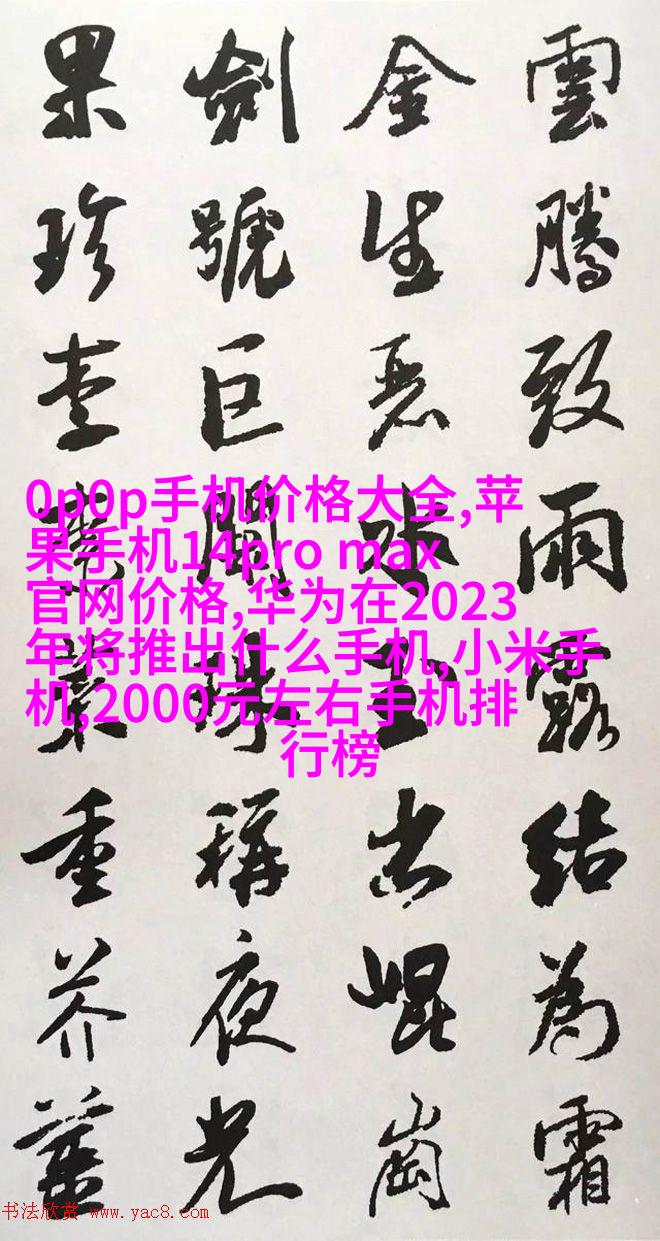 雲騰致雨露結為霜
金生麗水玉出崐崗
劍號巨闕珠稱夜光
果珍李柰菜重芥薑
0p0p手机价格大全,苹
果手机14pro max
官网价格,华为在2023
年将推出什么手机,小米手
机,2000元左右手机排
行榜
书法欣赏 www.yac8.com